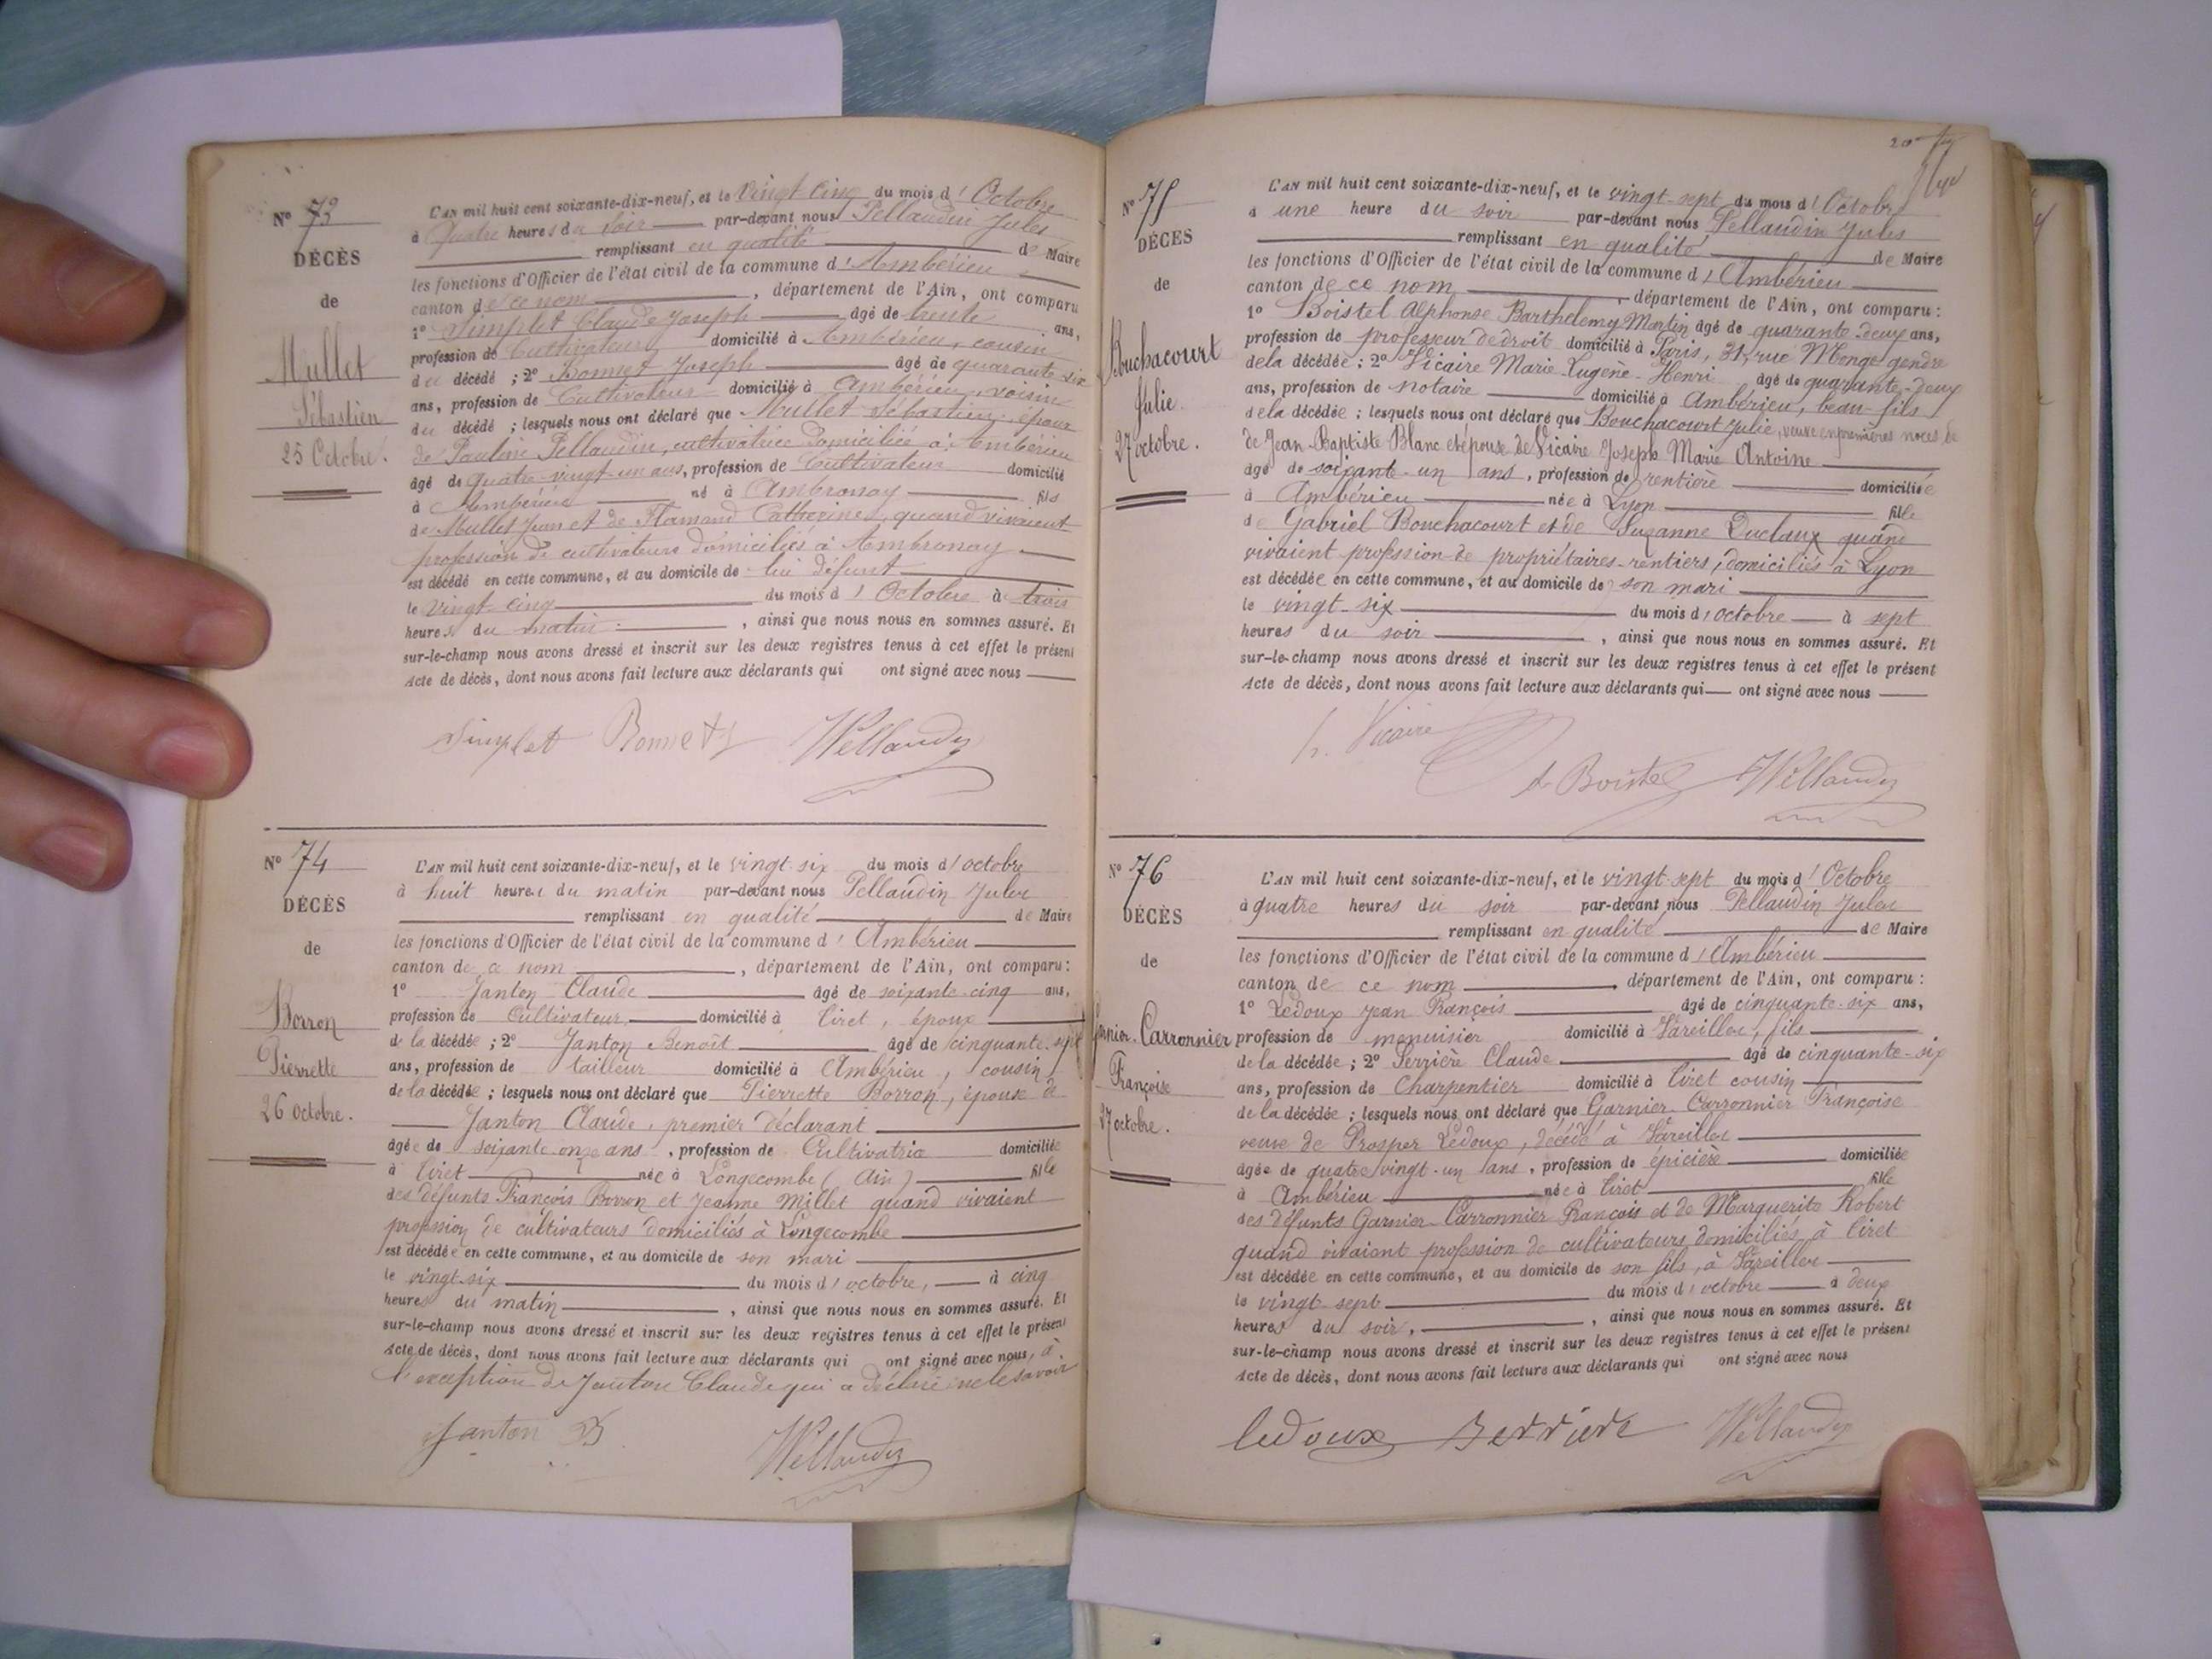 N° 73
DÉCÈS
de
Mullet
Sébastien
25 Octobre.
L'AN mil huit cent soixante-dix-neuf, et le Vingt-Cinq du mois d'Octobre
à Quatre heures du Soir par-devant nous Pellaudin Jules
remplissant en qualité de Maire
les fonctions d'Officier de l'état civil de la commune d'Ambérieu
canton de ce nom, département de l'Ain, ont comparu
1° Simplet Claude Joseph âgé de trente ans,
profession de Cultivateur domicilié à Ambérieu, cousin
du décédé ; 2° Bonnet Joseph âgé de quarante six
ans, profession de Cultivateur domicilié à Ambérieu, voisin
du décédé ; lesquels nous ont déclaré que Mullet Sébastien, époux
de Pauline Pellaudin, cultivatrice domiciliée à Ambérieu
âgé de quatre-vingt-un ans, profession de Cultivateur domicilié
à Ambérieu né à Ambronay fils
de Mullet Jean et de Flamand Catherine, quand vivaient
profession de cultivateurs domiciliés à Ambronay
est décédé en cette commune, et au domicile de lui défunt
le Vingt-cinq du mois d'Octobre à trois
heures du matin, ainsi que nous nous en sommes assuré. Et
sur-le-champ nous avons dressé et inscrit sur les deux registres tenus à cet effet le présent
Acte de décès, dont nous avons fait lecture aux déclarants qui ont signé avec nous
Simplet Bonnet J Pellaudin
N° 74
DÉCÈS
de
Borron
Pierrette
26 octobre.
L'AN mil huit cent soixante-dix-neuf, et le vingt-six du mois d'octobre
à huit heures du matin par-devant nous Pellaudin Jules
remplissant en qualité de Maire
les fonctions d'Officier de l'état civil de la commune d'Ambérieu
canton de ce nom, département de l'Ain, ont comparu :
1° Janton Claude âgé de soixante-cinq ans,
profession de Cultivateur domicilié à Tiret, époux
de la décédée ; 2° Janton Benoît âgé de cinquante-sept
ans, profession de tailleur domicilié à Ambérieu, cousin
de la décédée ; lesquels nous ont déclaré que Pierrette Borron, épouse de
Janton Claude, premier déclarant
âgée de soixante-onze ans, profession de Cultivatrice domiciliée
à Tiret née à Longecombe (Ain) fille
des défunts François Borron et Jeanne Millet quand vivaient
profession de cultivateurs domiciliés à Longecombe
est décédée en cette commune, et au domicile de son mari
le vingt-six du mois d'octobre, à cinq
heures du matin, ainsi que nous nous en sommes assuré. Et
sur-le-champ nous avons dressé et inscrit sur les deux registres tenus à cet effet le présent
Acte de décès, dont nous avons fait lecture aux déclarants qui ont signé avec nous, à
l'exception de Janton Claude qui a déclaré ne le savoir
Janton B Pellaudin
N° 75
DÉCÈS
de
Bouchacourt
Julie.
27 octobre.
L'AN mil huit cent soixante-dix-neuf, et le vingt-sept du mois d'Octobre
à une heure du soir par-devant nous Pellaudin Jules
remplissant en qualité de Maire
les fonctions d'Officier de l'état civil de la commune d'Ambérieu
canton de ce nom département de l'Ain, ont comparu :
1° Boistel Alphonse Barthelemy Martin âgé de quarante-deux ans,
profession de professeur de droit domicilié à Paris, 31, rue Monge gendre
de la décédée ; 2° Vicaire Marie-Eugene-Henri âgé de quarante-deux
ans, profession de notaire domicilié à Ambérieu, beau-fils
de la décédée ; lesquels nous ont déclaré que Bouchacourt Julie, veuve en premières noces de
de Jean-Baptiste Blanc et épouse de Vicaire Joseph Marie Antoine
âgé de soixante-un ans, profession de rentière domiciliée
à Ambérieu née à Lyon fille
de Gabriel Bouchacourt et de Suzanne Duclaux quand
vivaient profession de propriétaires-rentiers, domiciliés à Lyon
est décédée en cette commune, et au domicile de son mari
le vingt-six du mois d'octobre à sept
heures du soir, ainsi que nous nous en sommes assuré. Et
sur-le-champ nous avons dressé et inscrit sur les deux registres tenus à cet effet le présent
Acte de décès, dont nous avons fait lecture aux déclarants qui ont signé avec nous
h. Vicaire
A Boistel Pellaudin
N° 76
DÉCÈS
de
Garnier-Carronnier
Françoise
27 octobre.
L'AN mil huit cent soixante-dix-neuf, et le vingt-sept du mois d'Octobre
à quatre heures du soir par-devant nous Pellaudin Jules
remplissant en qualité de Maire
les fonctions d'Officier de l'état civil de la commune d'Ambérieu
canton de ce nom, département de l'Ain, ont comparu :
1° Ledoux Jean François âgé de cinquante-six ans,
profession de menuisier domicilié à Vareilles, fils
de la décédée ; 2° Serrière Claude âgé de cinquante-six
ans, profession de Charpentier domicilié à Tiret cousin
de la décédée ; lesquels nous ont déclaré que Garnier-Carronnier Françoise
veuve de Prosper Ledoux, décédé à Vareilles
âgée de quatre-vingt-un ans, profession de épicière domiciliée
à Ambérieu née à Tiret fille
des défunts Garnier-Carronnier François et de Marguerite Robert
quand vivaient profession de cultivateurs domiciliés à Tiret
est décédée en cette commune, et au domicile de son fils, à Vareilles
le vingt-sept du mois d'octobre à deux
heures du soir, ainsi que nous nous en sommes assuré. Et
sur-le-champ nous avons dressé et inscrit sur les deux registres tenus à cet effet le présent
Acte de décès, dont nous avons fait lecture aux déclarants qui ont signé avec nous
ledoux Serriere Pellaudin